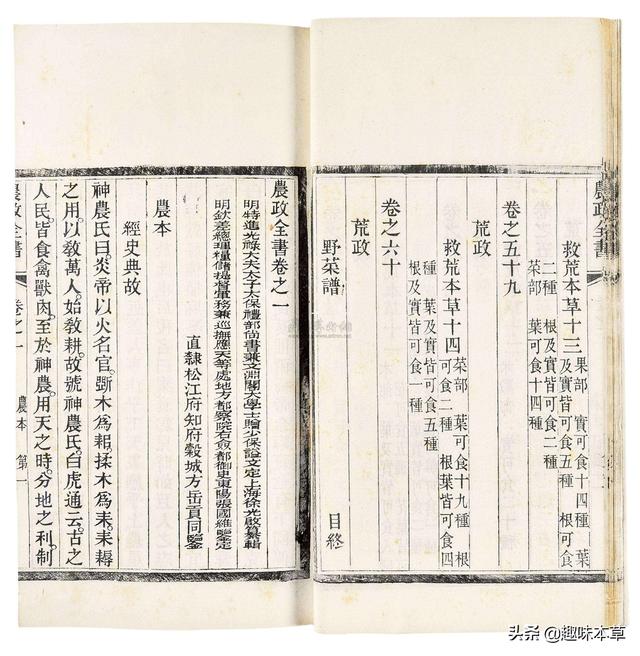 農政全書
救荒本草十三 果部 實可食十四種 葉
及實皆可食五種 根可食
二種 根及實皆可食二種
菜部 葉可食十四種
卷之五十九
荒政
救荒本草十四 菜部 葉可食十九種 根
可食二種 根葉皆可食四
種 葉及實皆可食五種
根及實皆可食一種
卷之六十
荒政
野菜譜
目終
農政全書卷之一
明特進光祿大夫太子太保禮部尚書兼文淵閣大學士贈少保諡文定上海徐光啟纂輯
明欽差總理糧儲提督軍務兼巡撫應天等處地方都察院右僉都御史東陽張國維鑒定
直隸松江府知府穀城方岳貢同鑒
農本
經史典故
神農氏曰炎帝以火名官。斲木為耜揉木為耒。耒耨
之用。以敎萬人。始敎耕。故號神農氏。白虎通云。古之
人民。皆食禽獸肉。至於神農。用天之時。分地之利。制
農政全書 卷之一 農本 第一
头条 @趣味本草